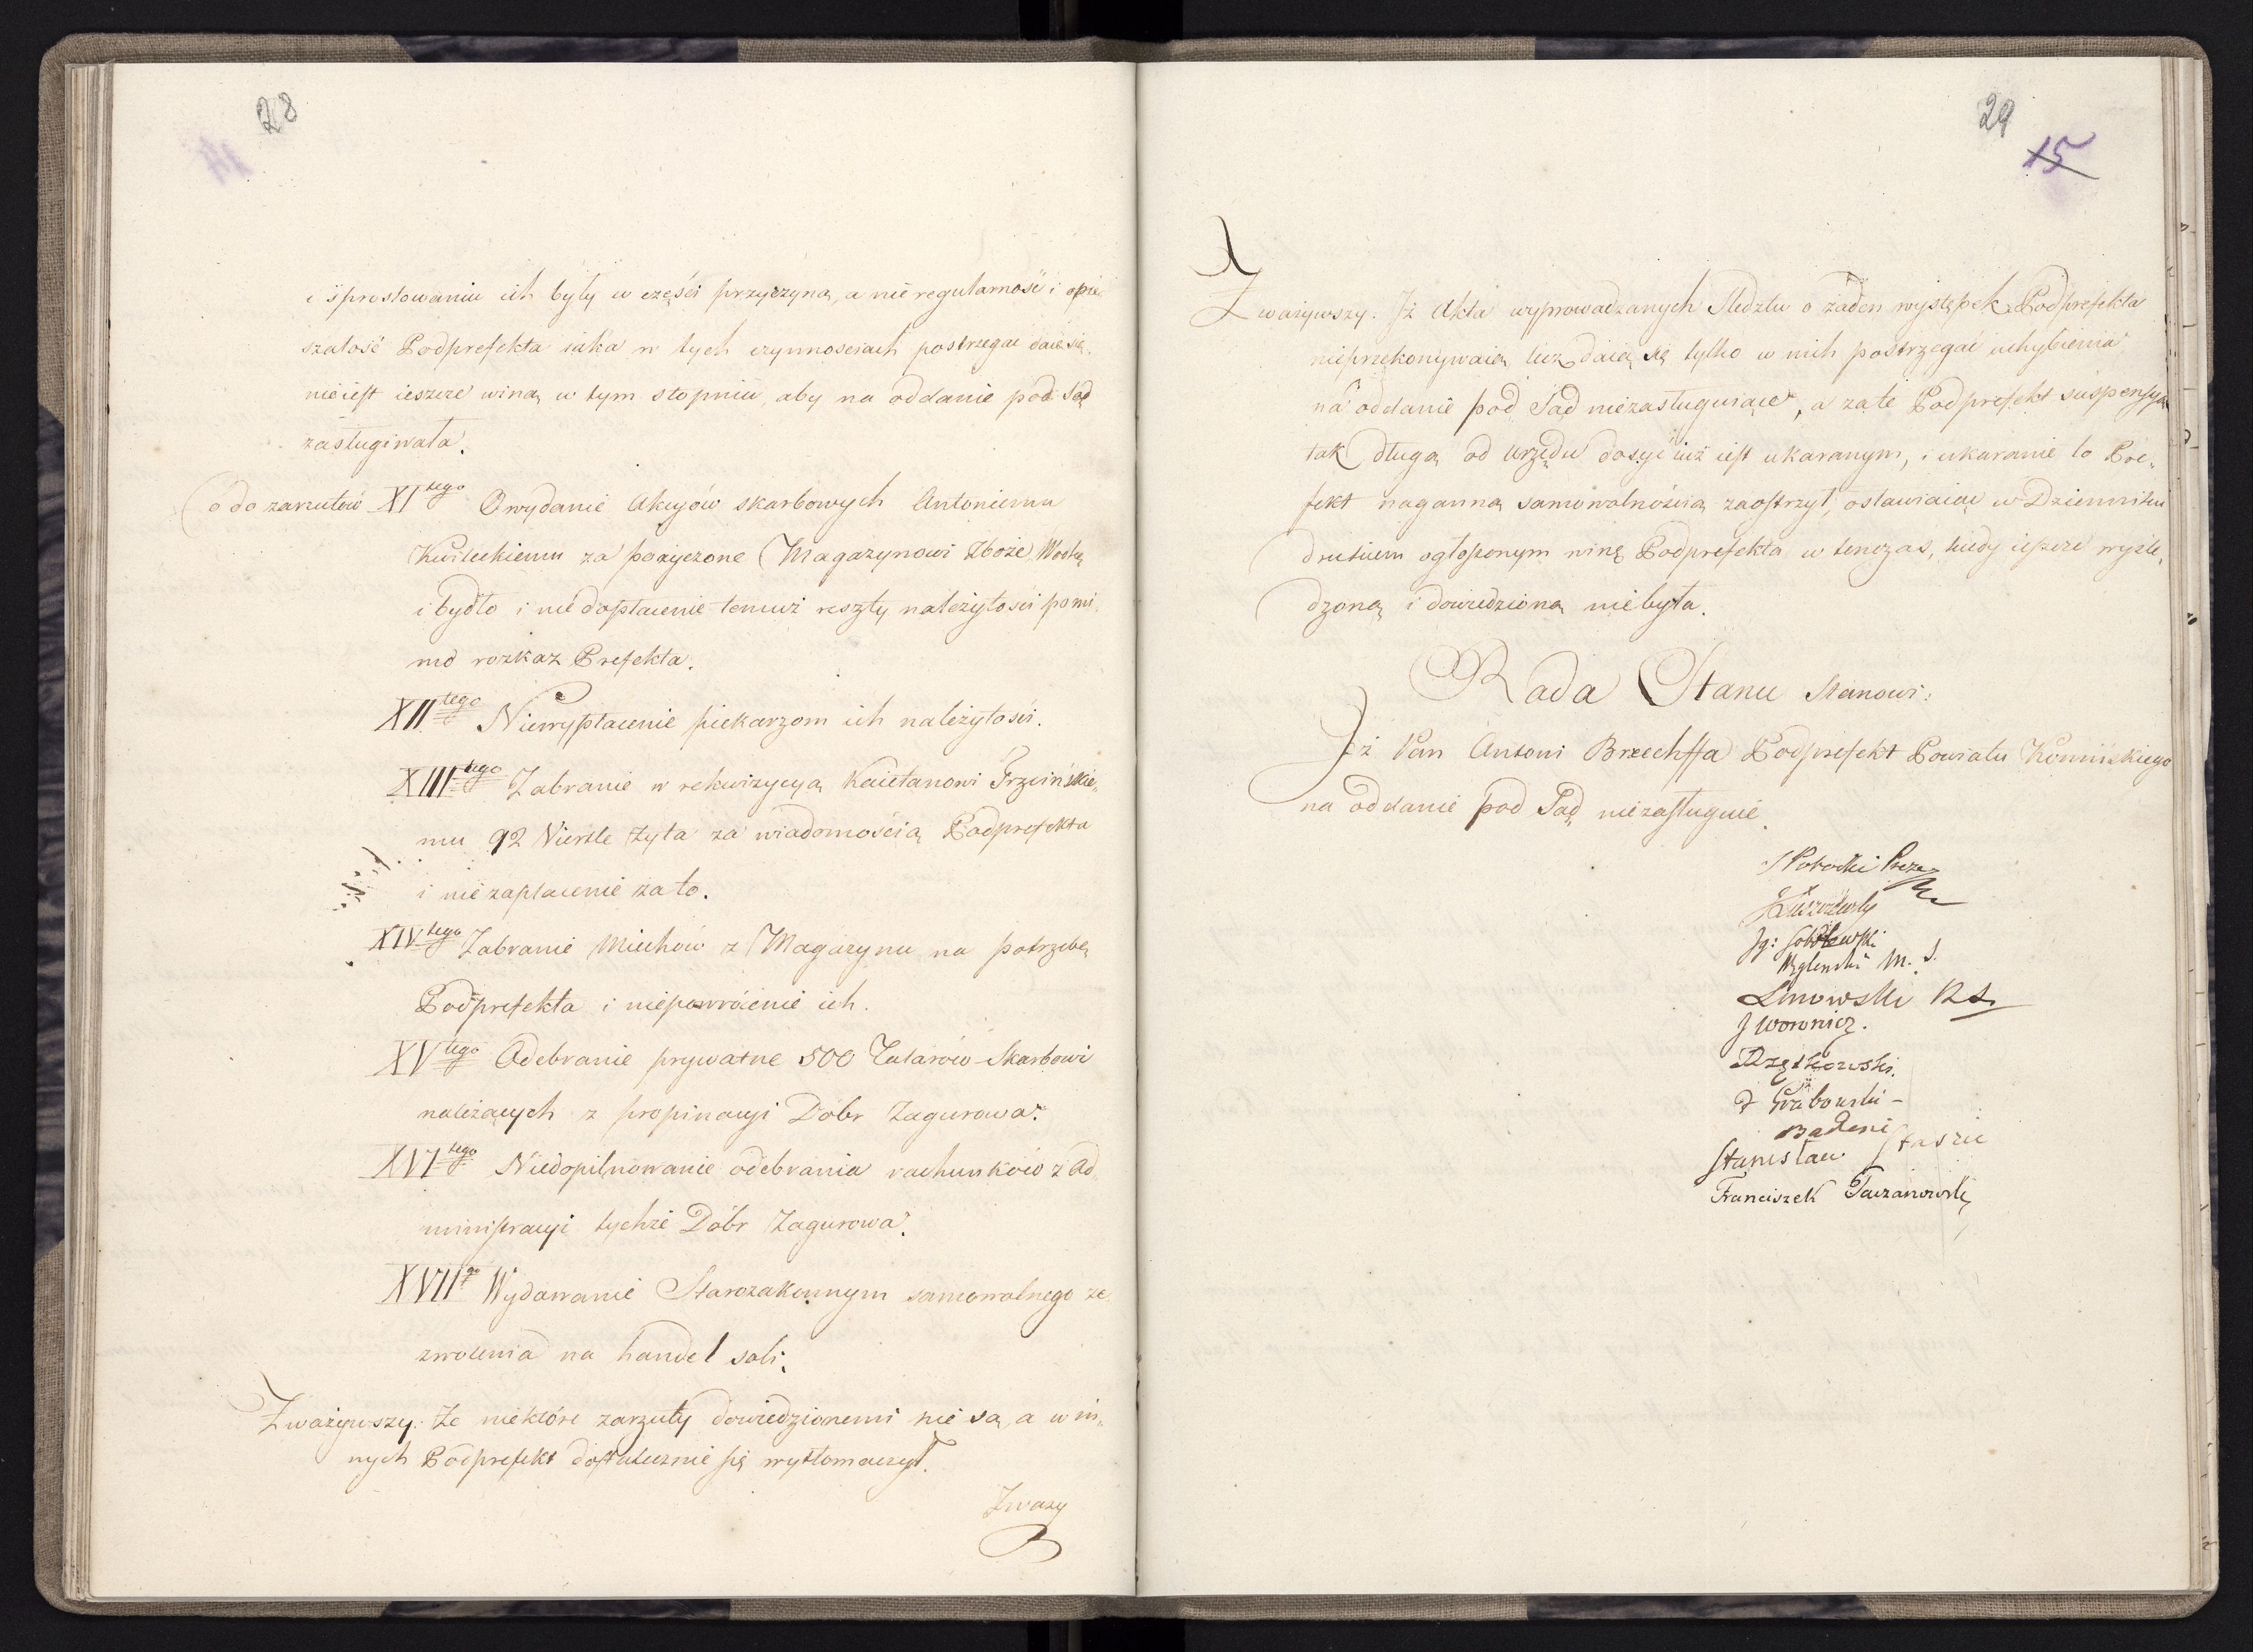 28
i sprostowaniu ich były w części przyczyną, a nie regularność i opie„
szałość Podprefekta iaka w tych czynnościach postrzegać daie się,
nie iest ieszcze winą w tym stopniu, aby na oddanie pod Sąd
zasługiwała.
Co do zarzutów XI<sup>tego</sup> O wydanie Akcyów skarbowych Antoniemu
Kwileckiemu za pożyczone Magazynowi Zboże, Wodkę
i bydło i nie dopłacenie temuż reszty należytości pomi„
mo rozkaz Prefekta.
XII<sup>tego</sup> Niewypłacenie piekarzom ich należytości.
XIII<sup>tego</sup> Zabranie w rekwizycyą Kaietanowi Trzcińskie„
mu 92 Viertle żyta za wiadomością Podprefekta
i nie zapłacenie za to.
XIV<sup>tego</sup> Zabranie Miechów z Magazynu na potrzebę
Podprefekta i niepowrócenie ich.
XV<sup>tego</sup> Odebranie prywatne 500 Talarów Skarbowi
należących z propinacyi Dóbr Zagurowa.
XVI<sup>tego</sup> Niedopilnowanie odebrania rachunków z Ad„
ministracyi tychże Dóbr Zagurowa.
XVII<sup>go</sup> Wydawanie Starozakonnym samowolnego ze
zwolenia na handel soli.
Zważywszy: że niektóre zarzuty dowiedzionemi nie są, a w in„
nych Podprefekt dostatecznie się wytłomaczył.
Zważy
29
15
Zważywszy: Iż Akta wyprowadzanych Sledztw o żaden występek Podprefekta
nieprzekonywaią lecz daią się tylko w nich postrzegać uchybienia
na oddanie pod Sąd niezasługuiące, a za te Podprefekt suspensyą
tak długą od Urzędu dosyć iuż iest ukaranym, i ukaranie to Pre„
fekt naganną samowolnością zaostrzył, ostawiaiąc w Dzienniku
drukiem ogłoszonym winę Podprefekta w tenczas, kiedy ieszcze wyśle„
dzoną i dowiedzioną niebyła.
Rada Stanu Stanowi:
Iż Pan Antoni Brzechffa Podprefekt Powiatu Konińskiego
na oddanie pod Sąd niezasługuie.
S Potocki Prezes
Łuszczewsky
Ig: Sobolewski
Węgleński M. S.
Linowski RS.
J Woronicz.
Rzętkowski.
Grabowski –
Badeni
Stanislaw Staszic
Franciszek Taczanowski